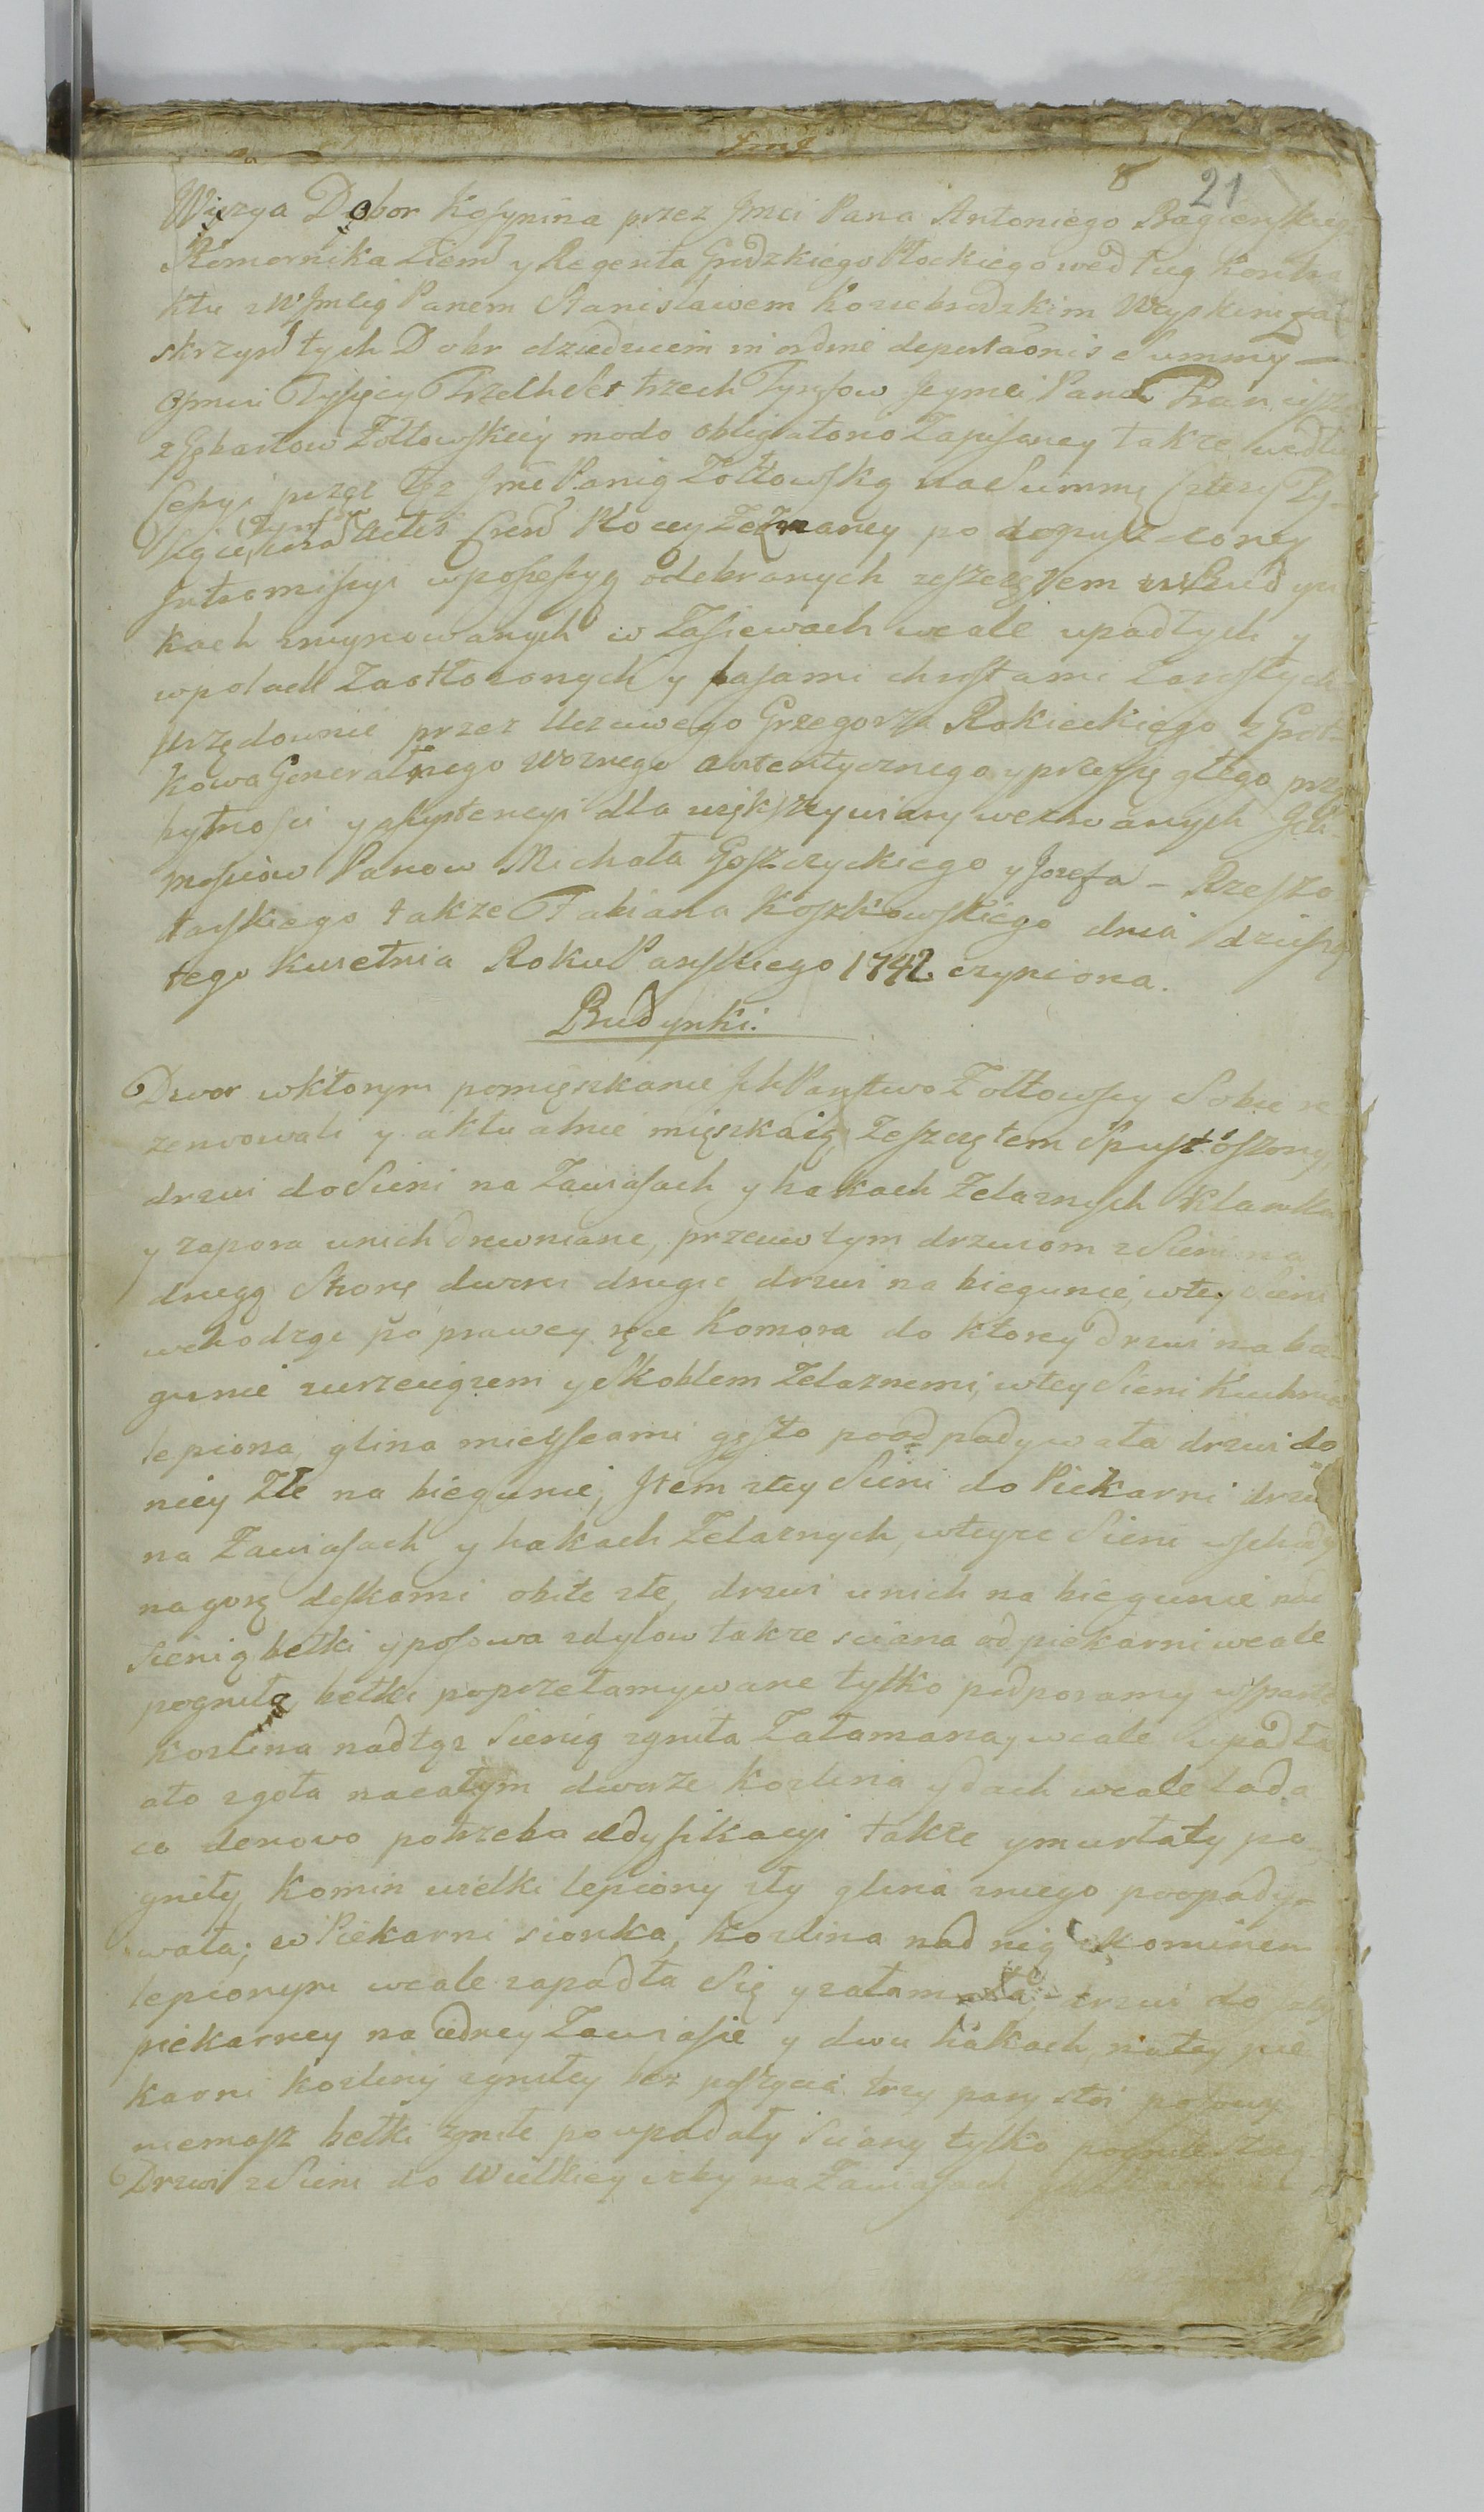 8 21
Wizya Dobor Kosynina przez Jmci Pana Antoniego Bagienskieg
Komornika Ziem y Regenta Grodzkiego Płockiego według Kontra
ktu z WJmcią Panem Stanisławem Koziebrodzkim
skrzys tych Dobr dziedzicem in ordine deportaonis Summy —
Osmiu Tysięcy Trzechset trzech Tynfow Jeymci Pani Franciszce
z Gębartow Zołtowskiey modo obligatorio Zapisaney takze wedłu
Cessyi przez tęz Jmc Panią Zołtowską na Summę Cztery Ty-
siące Tynf Actis Płoccy Zeznaney po dopuszczoney
Intromissyi w possessyą odebranych zeszczętem w Budyn
kach zruynowanych w Zasiewach wcale upadłych y
w polach Zaotłozonych y łasami chrostami Zarosłych
urzędownie przez Uczciwego Grzegorza Rokickiego z Grot-
kowa Generalnego Woznego autentycznego y przysięgłego przy
bytnosci y assystencyi dla większey wiary wezwanych Ich
mosciow Panow Michała Goszczyckiego y Jozefa – Rzeszo
tarskiego takze Fabiana Koszkowskiego dnia dziesią
tego Kwietnia Roku Panskiego 1742 czyniona.
Budynki.
Dwor w ktorym pomięszkanie Ich Panstwo Zołtowscy Sobie re
zerwowali y aktualnie mięszkaią Zeszczętem Spustoszony,
drzwi do Sieni na Zawiasach y hakach Zelaznych Klamka
y zapora u nich drewniane, przeciw tym drzwiom z Sieni na
drugą Stronę dworu drugie drzwi na biegunie, w tey Sieni
wchodząc po prawey ręce Komora do ktorey drzwi na bie
gunie z wrzeciązem y Skoblem Zelaznemi, w tey Sieni Kuchnia
lepiona, glina mieyscami gęsto poodpadywała drzwi do
niey Złe na biegunie, Item z tey Sieni do Piekarni drzwi
na Zawiasach y hakach Zelaznych, w teyze Sieni wschody
na gorę deskami obite złe, drzwi u nich na biegunie nad
Sienią belki y posowa z dylow takze sciana od piekarni wcale
pogniła, belki poprzełamywane tylko podporamy wsparte
Kozlina nad tąz Sienią zgniła Załamana, y wcale upadła
ato zgoła na całym dworze Kozlina y dach wcale lada
co denowo potrzeba edyfikacyi takze y murłaty po
gniły, Komin wielki lepiony zły glina z niego poopady-
wała; w Piekarni sionka, Kozlina nad nią z Kominem
lepionym wcale zapadła Się y załamała - drzwi do tey
piekarney na iedney Zawiasie y dwu hakach, na tey pie
karni kozliny zgniłey bez poszycia trzy pary stoi posowy
niemasz belki zgniłe powpadały Sciany tylko pogniłe stoią
Drzwi z Sieni do Wielkiey izby na Zawiasach